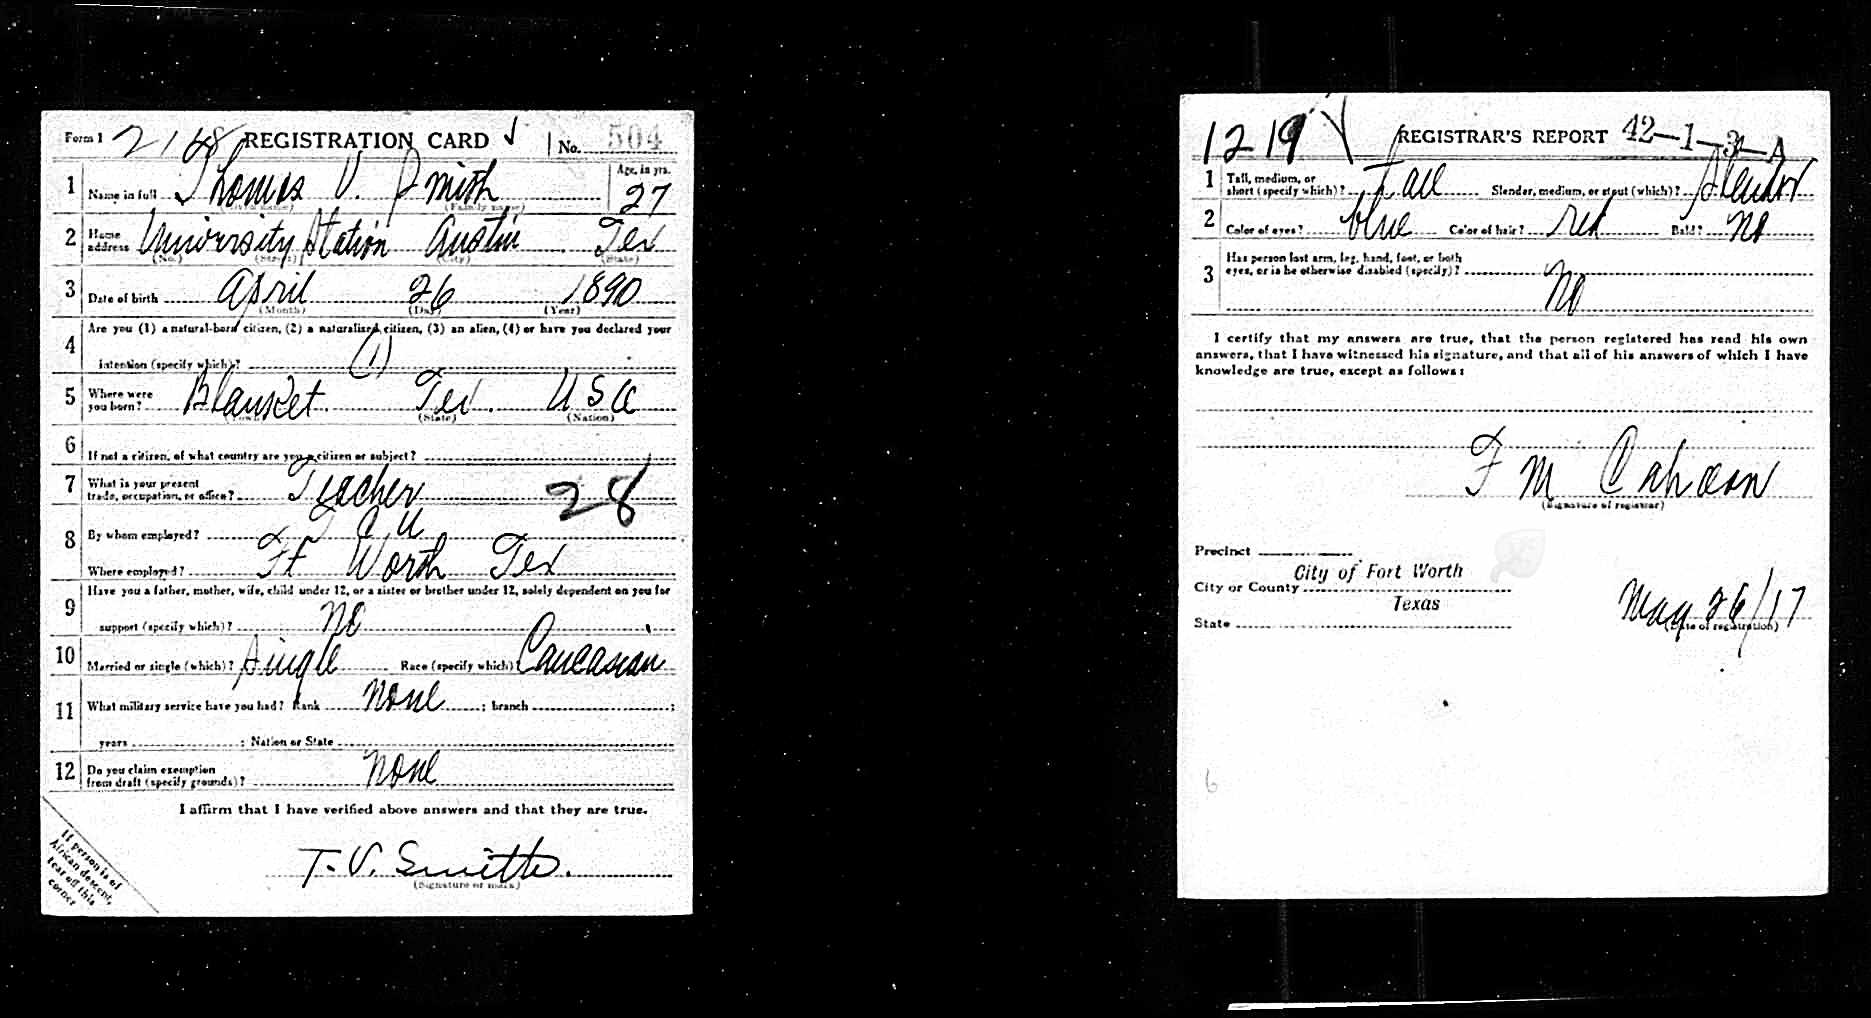 Form 1 2168 REGISTRATION CARD No. 504
1 Name in full Thomas V. Smith Age, in yrs. 27
(Given name) (Family name)
2 Home address University Station Austin Tex
(No.) (Street) (City) (State)
3 Date of birth April 26 1890
(Month) (Day) (Year)
4 Are you (1) a natural-born citizen, (2) a naturalized citizen, (3) an alien, (4) or have you declared your
intention (specify which)? (1)
5 Where were you born? Blanket Tex. USA
(Town) (State) (Nation)
6 If not a citizen, of what country are you a citizen or subject?
7 What is your present trade, occupation, or office? Teacher 28
8 By whom employed? T C U
Where employed? Ft Worth Tex
9 Have you a father, mother, wife, child under 12, or a sister or brother under 12, solely dependent on you for
support (specify which)? No
10 Married or single (which)? Single Race (specify which)? Caucasian
11 What military service have you had? Rank None ; branch ;
years ; Nation or State
12 Do you claim exemption from draft (specify grounds)? None
I affirm that I have verified above answers and that they are true.
T. V. Smith.
(Signature or mark)
If person is of
African descent,
tear off this
corner
1219 REGISTRAR'S REPORT 42-1-3-A
1 Tall, medium, or short (specify which)? Tall Slender, medium, or stout (which)? Slender
2 Color of eyes? blue Color of hair? red Bald? No
3 Has person lost arm, leg, hand, foot, or both
eyes, or is he otherwise disabled (specify)? No
I certify that my answers are true, that the person registered has read his own
answers, that I have witnessed his signature, and that all of his answers of which I have
knowledge are true, except as follows:
F M Cahoon
(Signature of registrar)
Precinct
City or County City of Fort Worth
State Texas
May 26/17
(Date of registration)
6